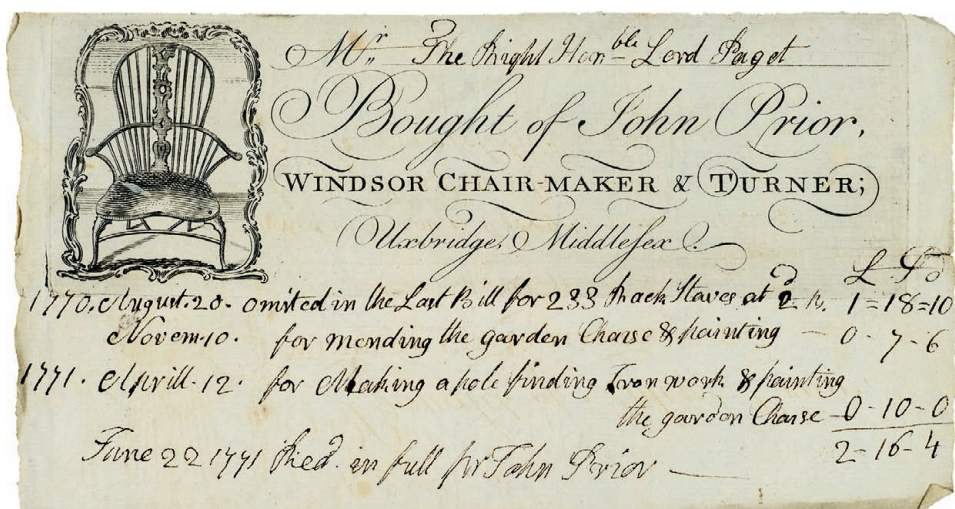 Mr. The Right Honble Lord Paget
Bought of John Prior,
WINDSOR CHAIR-MAKER & TURNER;
Uxbridge, Middlesex.
£ S D
1770. August. 20. omited in the Last Bill for 233 Rack Staves at 2d 1=18=10
Novem. 10. for mending the garden Chaise & painting — 0-7-6
1771. Aprill. 12. for Making a pole finding Iron work & painting
the garden Chaise - 0-10-0
2-16-4
June 22 1771 Recd. in full pr John Prior —